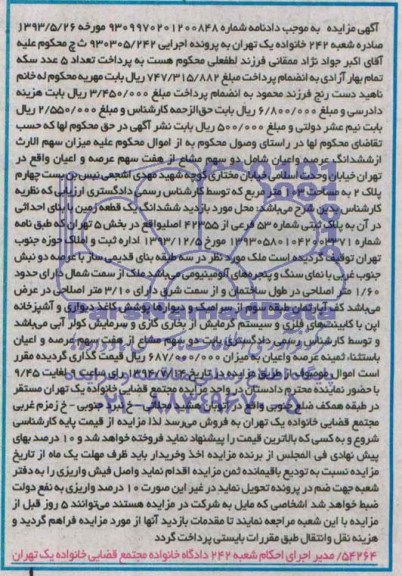 آگهی مزایده به موجب دادنامه شماره ۹۳۰۹۹۷۰۲۰۱۲۰۰۸۴۸ مورخه ۱۳۹۳/۵/۲۶
صادره شعبه ۲۴۲ خانواده یک تهران به پرونده اجرایی ۹۳۰۳۰۵/۲۴۲ ث ج محکوم علیه
آقای اکبر جواد نژاد ممقانی فرزند لطفعلی محکوم هست به پرداخت تعداد ۵ عدد سکه
تمام بهار آزادی به انضمام پرداخت مبلغ ۷۴۷/۳۱۵/۸۸۲ ریال بابت مهریه محکوم له خانم
ناهید دست رنج فرزند محمود به انضمام پرداخت مبلغ ۳/۴۵۰/۰۰۰ ریال بابت هزینه
دادرسی و مبلغ ۶/۸۰۰/۰۰۰ ریال بابت حق‌الزحمه کارشناس و مبلغ ۲/۵۵۰/۰۰۰ ریال
بابت نیم عشر دولتی و مبلغ ۵۰۰/۰۰۰ ریال بابت نشر آگهی در حق محکوم لها که حسب
تقاضای محکوم لها در راستای وصول محکوم به از اموال محکوم علیه میزان سهم الارث
ازششدانگ عرصه واعیان شامل دو سهم مشاع از هفت سهم عرصه و اعیان واقع در
تهران خیابان وحدت اسلامی خیابان مختاری کوچه شهید مهدی اشجعی نبس بن بست چهارم
پلاک ۲ به مساحت ۱۰۳ متر مربع که توسط کارشناس رسمی دادگستری ارزیابی که نظریه
کارشناس بدین شرح می‌باشد: محل مورد بازدید ششدانگ یک قطعه زمین با بنای احداثی
در آن به پلاک ثبتی شماره ۵۳ فرعی از ۴۲۳۵۵ اصلیواقع در بخش ۵ تهران که طبق نامه
شماره ۱۳۹۳۰۵۸۰۱۰۴۲۰۱۰۳۷۱ مورخ ۱۳۹۳/۱۲/۵ اداره ثبت و املاک حوزه جنوب
تهران توقیف گردیده است ملک مورد نظر در سه طبقه بنای قدیمی ساز با عرصه دو نبش
جنوب غربی با نمای سنگ و پنجره‌های آلومینیومی می‌باشد ملک از سمت شمال دارای حدود
۱/۶۰ متر اصلاحی در طول ساختمان و از سمت شرق دارای ۳/۱۰ متر اصلاحی در عرض
می‌باشد کف آپارتمان طبقه سوم از سرامیک و دیوارها پوشش کاغذ دیواری و آشپزخانه
اپن با کابینت‌های فلزی و سیستم گرمایش از بخاری گازی و سرمایش کولر آبی می‌باشد
و توسط کارشناس رسمی دادگستری بابت دو سهم مشاع از هفت سهم عرصه و اعیان
باستثناء ثمینه عرصه واعیان به میزان ۶۸۷/۰۰۰/۰۰۰ ریال قیمت گذاری گردیده مقرر
است اموال موصوف از طریق مزایده در تاریخ ۱۳۹۴/۷/۱۴ از ساعت ۹ لغایت ۹/۴۵
با حضور نماینده محترم دادستان در واحد مزایده مجتمع قضایی خانواده یک تهران مستقر
در طبقه همکف ضلع جنوبی واقع در اتوبان شهید محلاتی – خ نبرد جنوبی – خ زمزم غربی
مجتمع قضایی خانواده یک تهران به فروش می‌رسد لذا مزایده از قیمت پایه کارشناسی
شروع و به کسی که بالاترین قیمت را پیشنهاد نماید فروخته خواهد شد و ۱۰ درصد بهای
پیش نهادی فی المجلس از برنده مزایده اخذ وخریدار باید ظرف مهلت یک ماه از تاریخ
مزایده نسبت به تودیع باقیمانده ثمن مزایده اقدام نماید واصل فیش واریزی را به دفتر
شعبه جهت ضم در پرونده تحویل نماید در غیر این صورت ۱۰ درصد واریزی به نفع دولت
ضبط خواهد شد اشخاصی که مایل به شرکت در مزایده هستند می‌توانند ۵ روز قبل از
مزایده با این شعبه مراجعه نمایند تا مقدمات بازدید آنها از مورد مزایده فراهم گردید و
هزینه نقل وانتقال طبق مقررات بایستی پرداخت گردد
۵۴۲۶۴/ مدیر اجرای احکام شعبه ۲۴۲ دادگاه خانواده مجتمع قضایی خانواده یک تهران